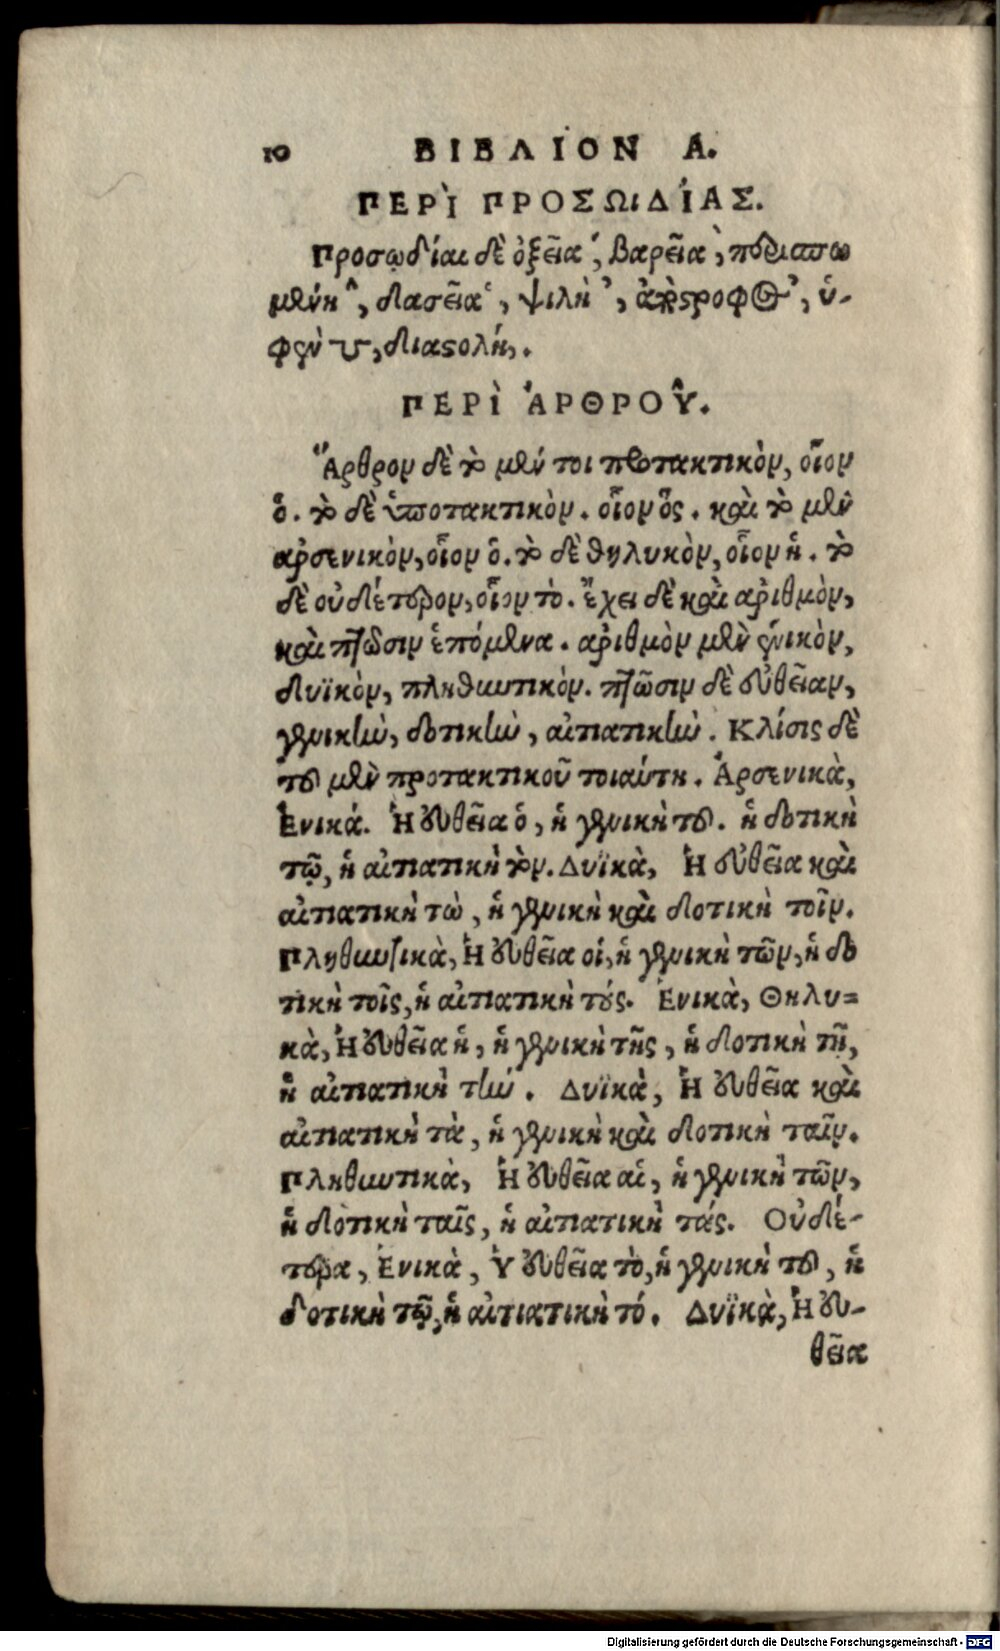 10 ΒΙΒΛΙΟΝ Α.
ΠΕΡῚ ΠΡΟΣΩΙΔΊΑΣ.
Προσῳδίαι δὲ ὀξεῖα ´, βαρεῖα `, περισπω
μένη ῀, δασεῖα ῾, ψιλὴ ᾿, ἀπόστροφος ᾿, ὑ-
φὲν ‿, διαστολή, .
ΠΕΡῚ ἌΡΘΡΟΥ͂.
Ἄρθρον δὲ τὸ μέν τοι προτακτικὸν, οἷον
ὁ. τὸ δὲ ὑποτακτικὸν. οἷον ὃς. καὶ τὸ μὲν
αρσενικὸν, οἷον ὁ. τὸ δὲ θηλυκὸν, οἷον ἡ. τὸ
δὲ οὐδέτερον, οἷον τὸ. ἔχει δὲ καὶ αριθμὸν,
καὶ πτῶσιν ἑπόμενα. αριθμὸν μὲν ἑνικὸν,
δυϊκὸν, πληθυντικὸν. πτῶσιν δὲ εὐθεῖαν,
γενικὴν, δοτικὴν, αἰτιατικὴν. Κλίσις δὲ
του μὲν προτακτικοῦ τοιαύτη. Ἀρσενικὰ,
Ἑνικά. Ἡ εὐθεῖα ὁ, ἡ γενικὴ του. ἡ δοτικὴ
τῷ, ἡ αἰτιατικὴ τὸν. Δυϊκὰ, Ἡ εὐθεῖα καὶ
αἰτιατικὴ τὼ, ἡ γενικὴ καὶ δοτικὴ τοῖν.
Πληθυντικὰ, Ἡ εὐθεῖα οἱ, ἡ γενικὴ τῶν, ἡ δο
τικὴ τοῖς, ἡ αἰτιατικὴ τούς. Ἑνικὰ, Θηλυ=
κὰ, Ἡ εὐθεῖα ἡ, ἡ γενικὴ τῆς, ἡ δοτικὴ τῇ,
ἡ αἰτιατικὴ τήν. Δυϊκὰ, Ἡ εὐθεῖα καὶ
αἰτιατικὴ τὰ, ἡ γενικὴ καὶ δοτικὴ ταῖν.
Πληθυντικὰ, Ἡ εὐθεῖα αἱ, ἡ γενικὴ τῶν,
ἡ δοτικὴ ταῖς, ἡ αἰτιατικὴ τάς. Οὐδέ-
τερα, Ἑνικὰ, Ὑ εὐθεῖα τὸ, ἡ γενικὴ του, ἡ
δοτικὴ τῷ, ἡ αἰτιατικὴ τό. Δυϊκὰ, Ἡ εὐ-
θεῖα
Digitalisierung gefördert durch die Deutsche Forschungsgemeinschaft - DFG